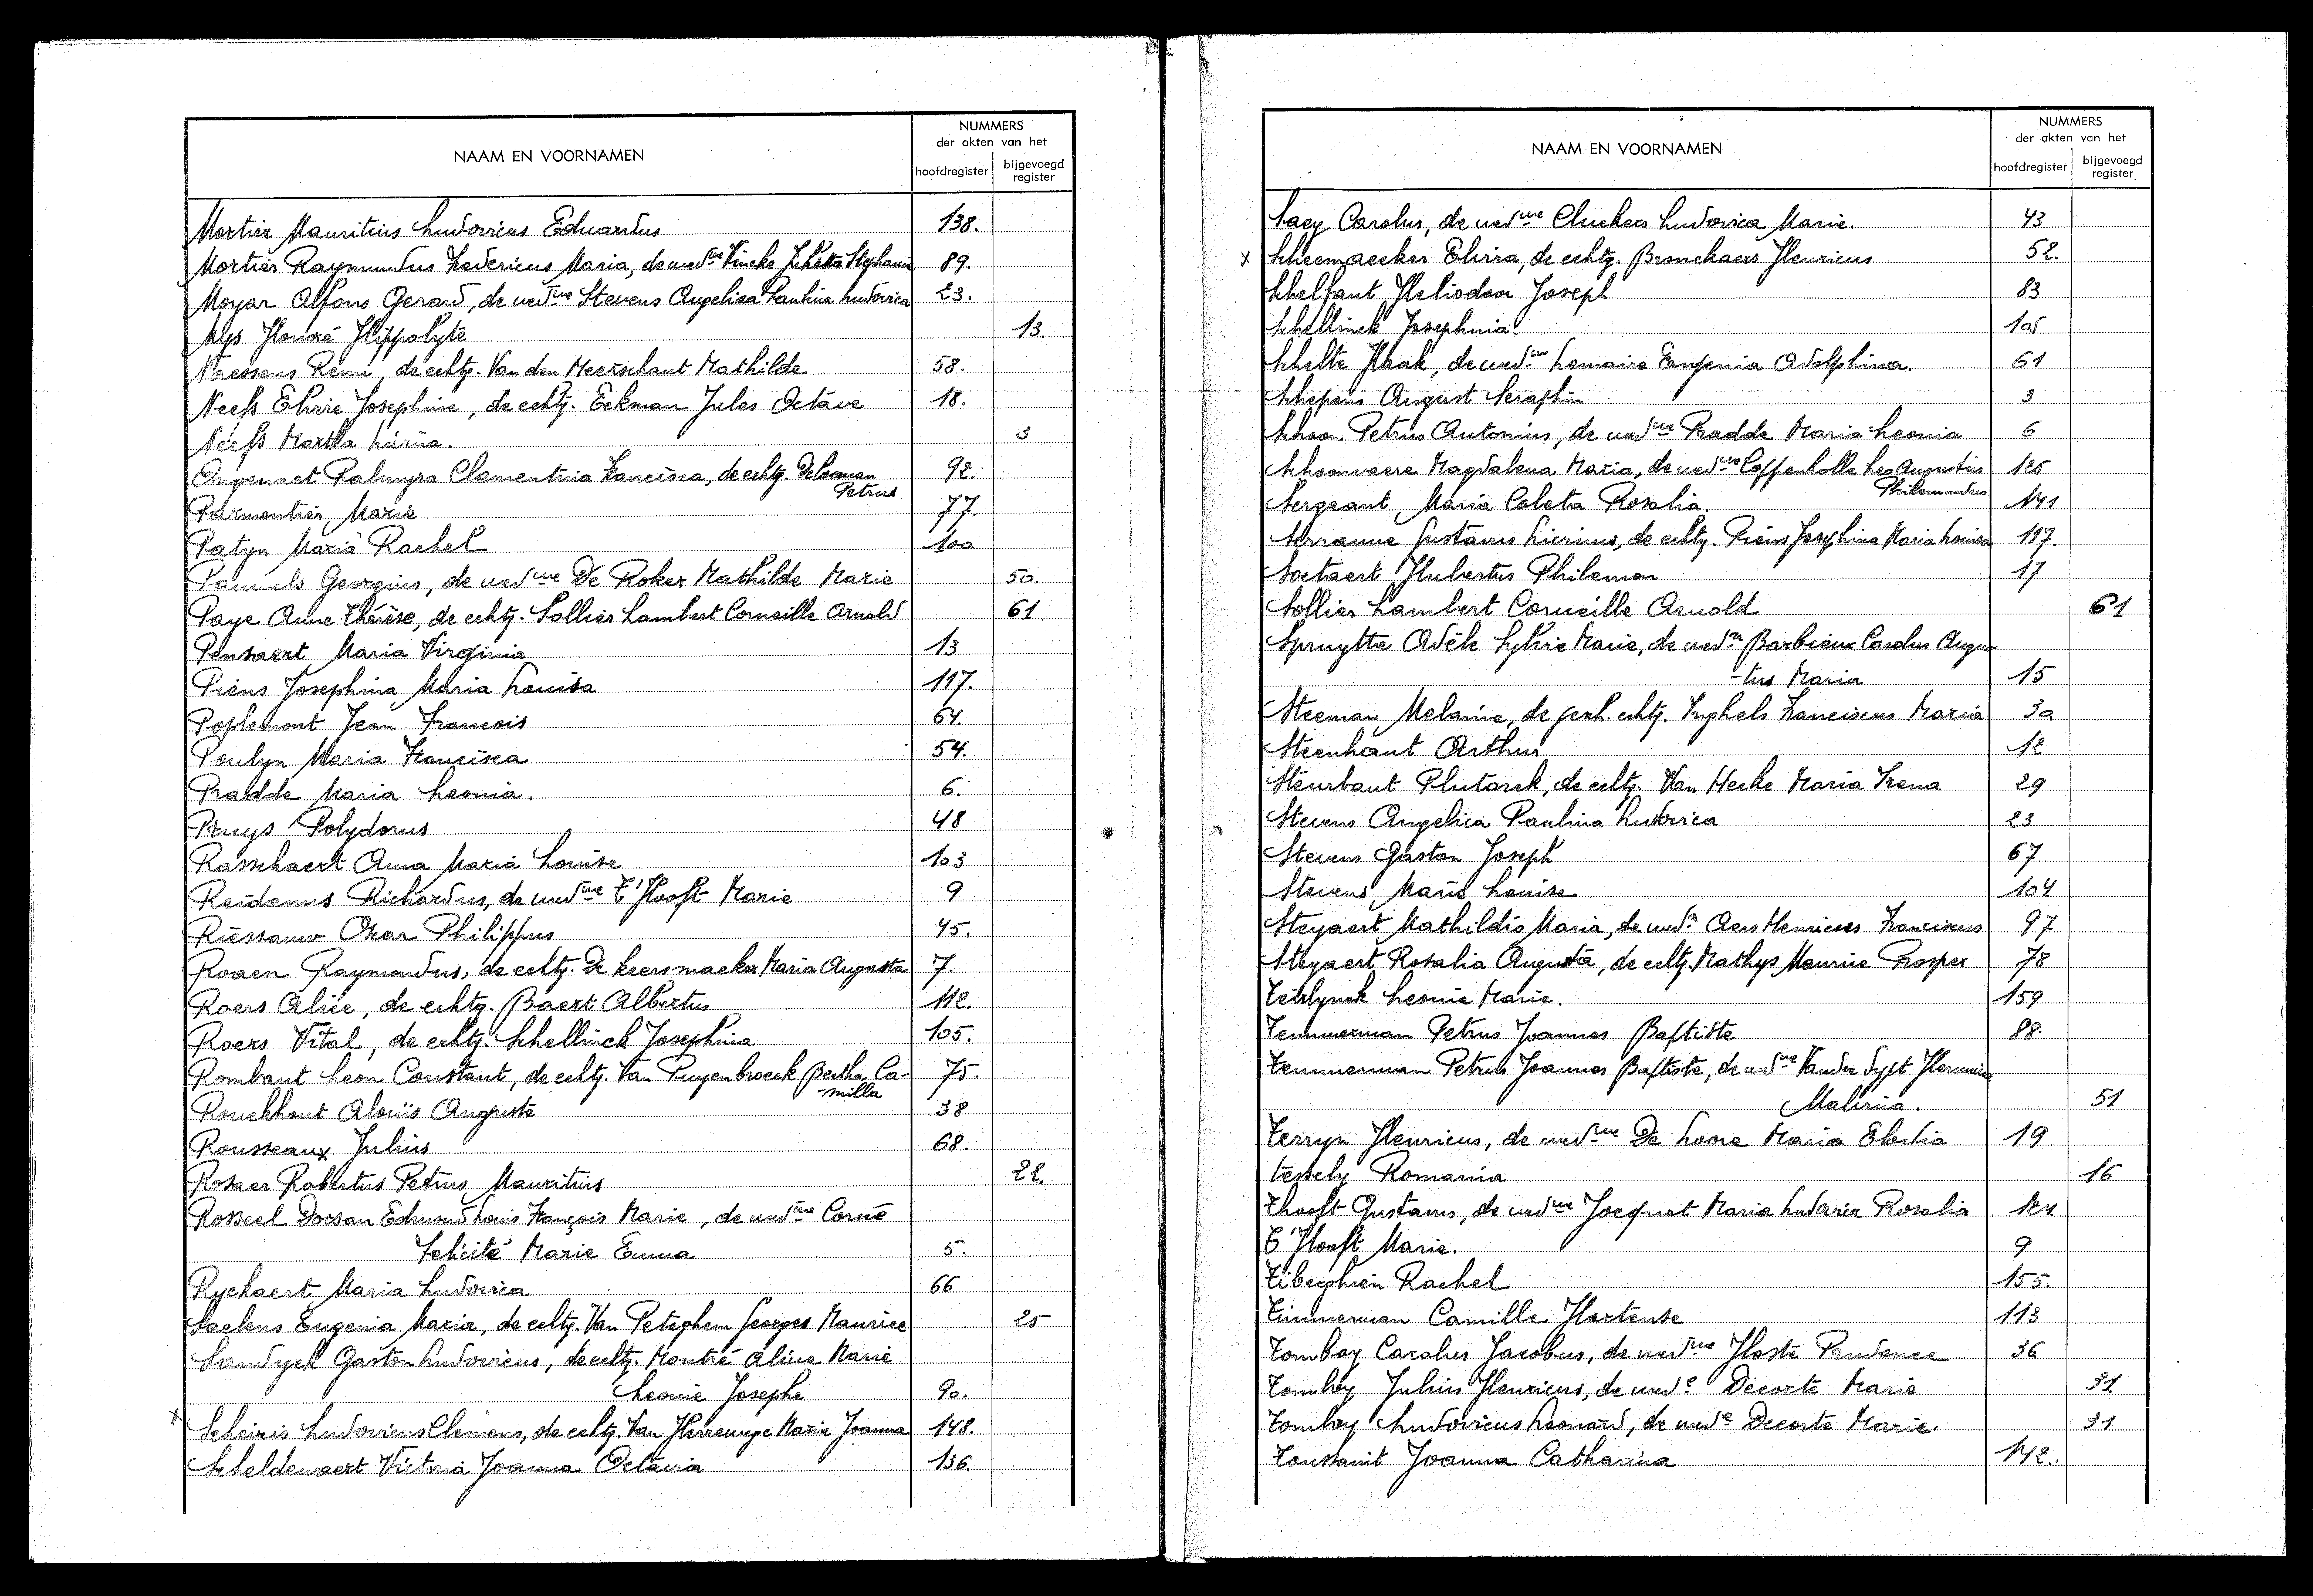 NAAM EN VOORNAMEN
NUMMERS
der akten van het
hoofdregister
bijgevoegd
register
Mortier Mauritius Ludovicus Eduardus 138.
Mortier Raymundus Fredericus Maria, de wedwe Vincke Julietta Stephanie 89.
Moyar Alfons Gerard, de wedwe Stevens Angelica Paulina Ludovica 23.
Mys Honoré Hippolyte 13.
Naessens Remi, de echtg. Van den Meerschaut Mathilde 58.
Neefs Elvire Josephine, de echtg. Eekman Jules Octave 18.
Neefs Martha 3
Ongenaet Palmyra Clementina Francisca, de echtg. De Loman 92.
Petrus
Parmentier Marie 77.
Patyn Maria Rachel 100
Pauwels Georgius, de wedwe De Roker Mathilde Marie 50.
Paye Anne Thérèse, de echtg. Sollier Lambert Corneille Arnold 61
Pensaert Maria Virginia 13
Piens Josephina Maria Louisa 117.
Poplemont Jean Francois 64.
Poulyn Maria Francisca 54.
Pradde Maria Leonia. 6.
Pruys Polydorus 48
Rasschaert Anna Maria Louise 103
Reidanus Richardus, de wedwe T'Hooft Marie 9
Riessauw Oscar Philippus 45.
Roaen Raymondus, de echtg. De Keersmaeker Maria Augusta 7.
Roers Alice, de echtg. Baert Albertus 112.
Roers Vital, de echtg. Schellinck Josephina 105.
Rombaut Leon Constant, de echtg. Van Puyenbroeck Bertha Ca- 75.
milla
Rouckhout Aloïs Auguste 38
Rousseaux Julius 68.
Rosaer Robertus Petrus Mauritius 22.
Rosseel Dorsan Edmond Louis François Marie, de wedwe Corne
Felicité Marie Emma 5.
Ryckaert Maria Ludovica 66
Saelens Eugenia Maria, de echtg. Van Peteghem Georges Maurice 25
Sandyck Gaston Ludovicus, de echtg. Montré Aline Marie
Leonie Josephe 90.
x Scheiris Ludovicus Clemens, de echtg. Van Herrewege Marie Joanna 148.
Scheldewaert Victoria Joanna Octavia 136.
NAAM EN VOORNAMEN
NUMMERS
der akten van het
hoofdregister
bijgevoegd
register
Saey Carolus, de wedwe Cluckers Ludovica Marie. 43
x Scheemaecker Elvira, de echtg. Bronckaers Henricus 52.
Schelfaut Heliodoor Joseph 83
Schellinck Josephina. 105
Schelte Haak, de wedwe Lemaire Eugenia Adolphina. 61
Schepens August Seraphin 3
Schoon Petrus Antonius, de wedwe Pradde Maria Leonia 6
Schoonvaere Magdalena Maria, de wedwe Coppenholle Leo Augustus 125
Philemondus
Sergeant Maria Coleta Rosalia. 141
Serranne Gustavus Livinus, de echtg. Piens Josephina Maria Louisa 117.
Soetaert Hubertus Philemon 17
Sollier Lambert Corneille Arnold 61
Spruytte Adèle Sylvie Marie, de wedr Barbieux Carolus Augus
-tus Maria 15
Steeman Melanine, de gesch. echtg. Inghels Franciscus Maria 30
Steenhaut Arthur 12
Steurbaut Plutarck, de echtg. Van Hecke Maria Irena 29
Stevens Angelica Paulina Ludovica 23
Stevens Gaston Joseph 67
Stevens Marie Louise 104
Steyaert Mathildis Maria, de wedr Aers Henricus Franciscus 97
Steyaert Rosalia Augusta, de echtg. Mathys Maurice Prosper 78
Teirlynck Leonie Marie. 159
Temmerman Petrus Joannes Baptiste 88.
Temmerman Petrus Joannes Baptiste, de wedwe Van der Sypt Herminia
Malvina. 51
Terryn Henricus, de wedwe De Loore Maria Elodia 19
Tessely Romania 16
Thooft Gustavus, de wedwe Jocquet Maria Ludovica Rosalia 124
T'Hooft Marie. 9
Tiberghien Rachel 155.
Timmerman Camille Hortense 113
Tomboy Carolus Jacobus, de wedwe Hoste Prudence 36
Tomboy Julius Henricus, de wede Decorte Marie 31
Tomboy Ludovicus Leonard, de wede Decorte Marie. 31
Toussaint Joanna Catharina 142.